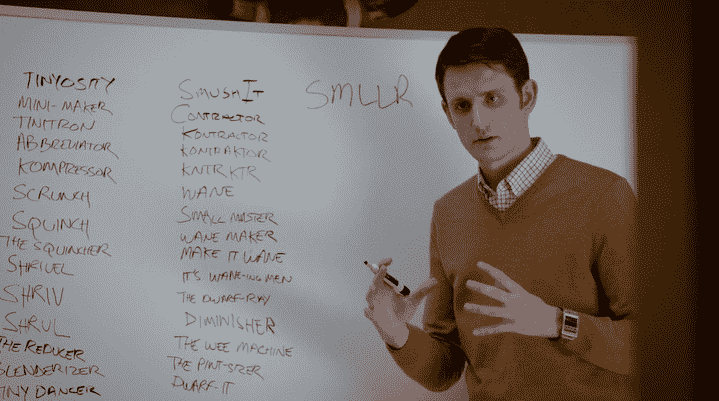 TINYOSITY
MINI-MAKER
TINITRON
ABBREVIATOR
KOMPRESSOR
SCRUNCH
SQUINCH
THE SQUINCHER
SHRIVEL
SHRIV
SHRUL
THE REDUCER
SLENDERIZER
TINY DANCER
SMUSHIT
CONTRACTOR
KONTRACTOR
KONTRAKTOR
KNTRKTR
WANE
SMALL MASTER
WANE MAKER
MAKE IT WANE
IT'S WANE-ING MEN
THE DWARF-RAY
DIMINISHER
THE WEE MACHINE
THE PINT-SIZER
DWARF-IT
SMLLR